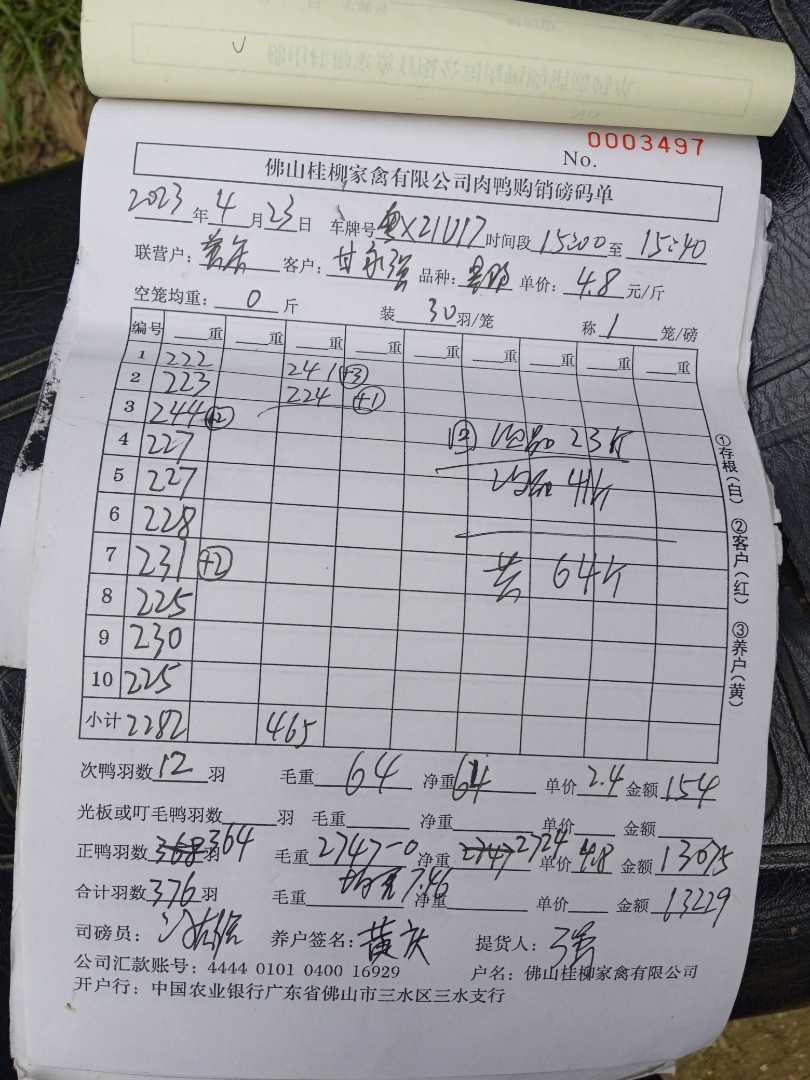 No. 0003497
佛山桂柳家禽有限公司肉鸭购销磅码单
2023年4月23日 车牌号粤X21U17时间段15:00至15:40
联营户： 客户：甘永强 品种： 单价：4.8元/斤
空笼均重：0斤 装30羽/笼 称1笼/磅
编号 重 重 重 重 重 重 重 重 重
1 222 241 +3
2 223 224 +1
3 244 +2
4 227 回 23斤
5 227 41斤
6 228
7 231 +2 共 64斤
8 225
9 230
10 225
小计 2282 465
①存根(白) ②客户(红) ③养户(黄)
次鸭羽数12羽 毛重64 净重64 单价2.4 金额154
光板或叮毛鸭羽数 羽 毛重 净重 单价 金额
正鸭羽数368 364羽 毛重2747-0 净重2747 2724 单价4.8 金额13075
合计羽数376羽 毛重 均重7.46 净重 单价 金额13229
司磅员： 养户签名：黄庆 提货人：
公司汇款账号：4444 0101 0400 16929 户名：佛山桂柳家禽有限公司
开户行：中国农业银行广东省佛山市三水区三水支行